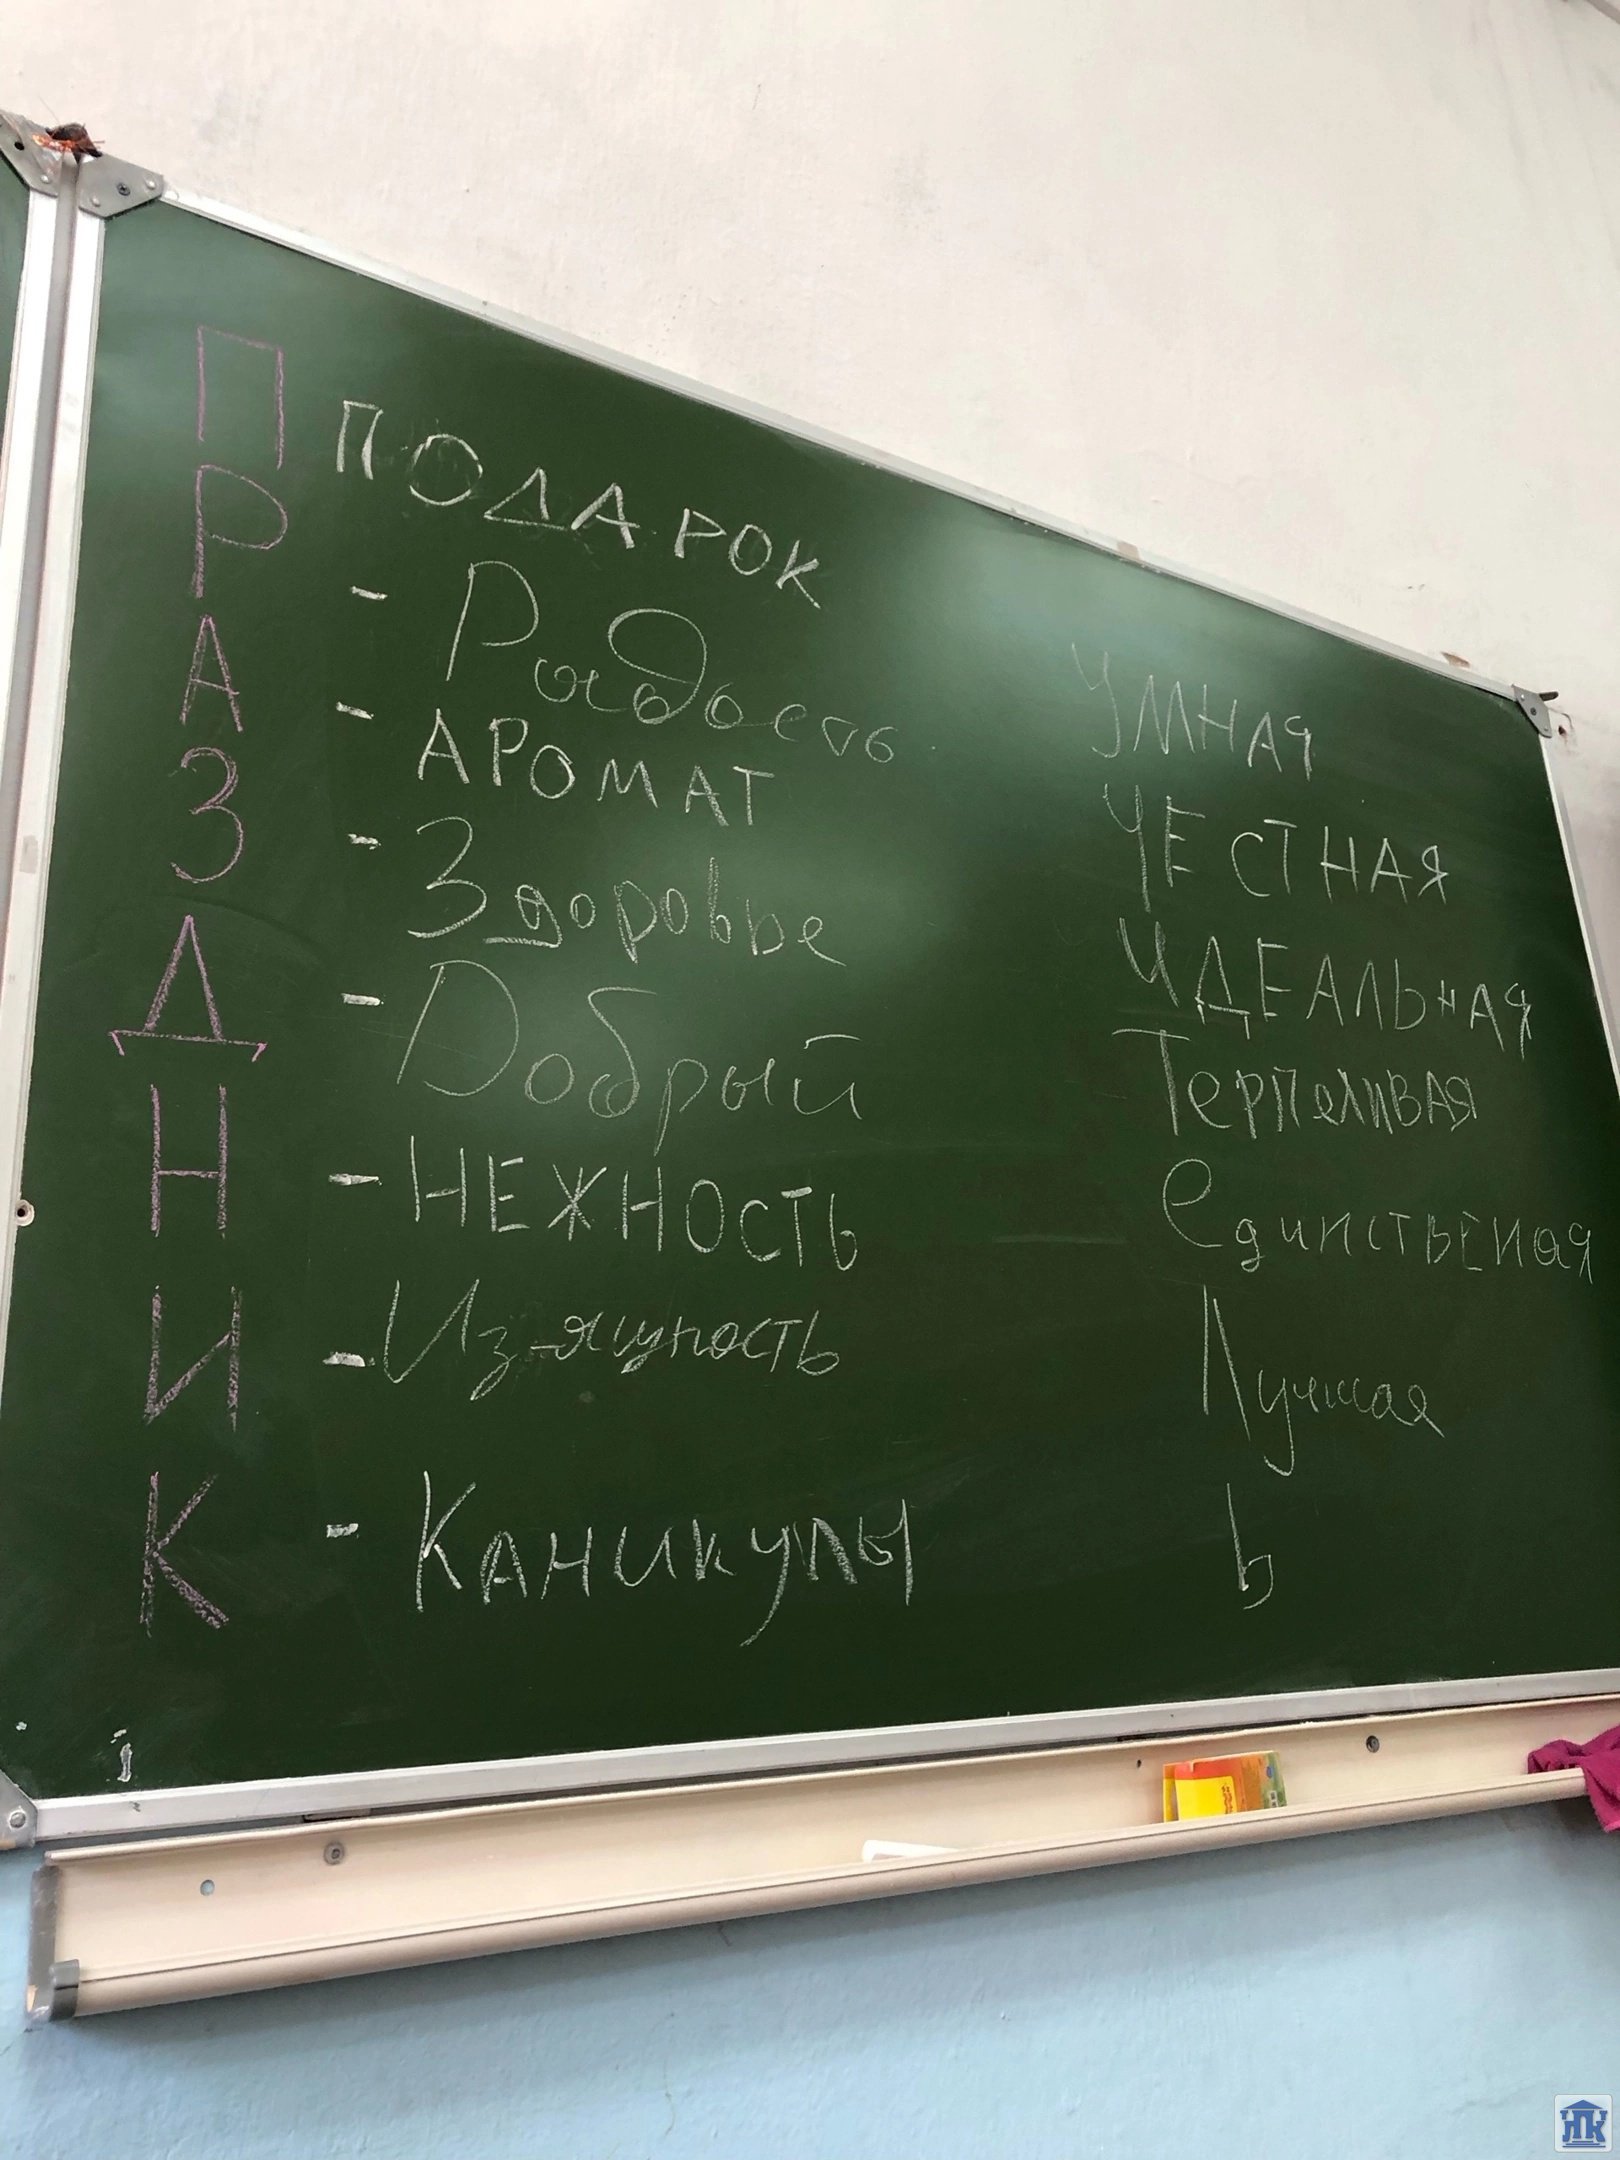 П ПОДАРОК
Р - Радость
А - АРОМАТ
З - Здоровье
Д - Добрый
Н - НЕЖНОСТЬ
И - Изящность
К - Каникулы
УМНАЯ
ЧЕСТНАЯ
ИДЕАЛЬНАЯ
Терпеливая
Единственая
Лучшая
Ь
ПК